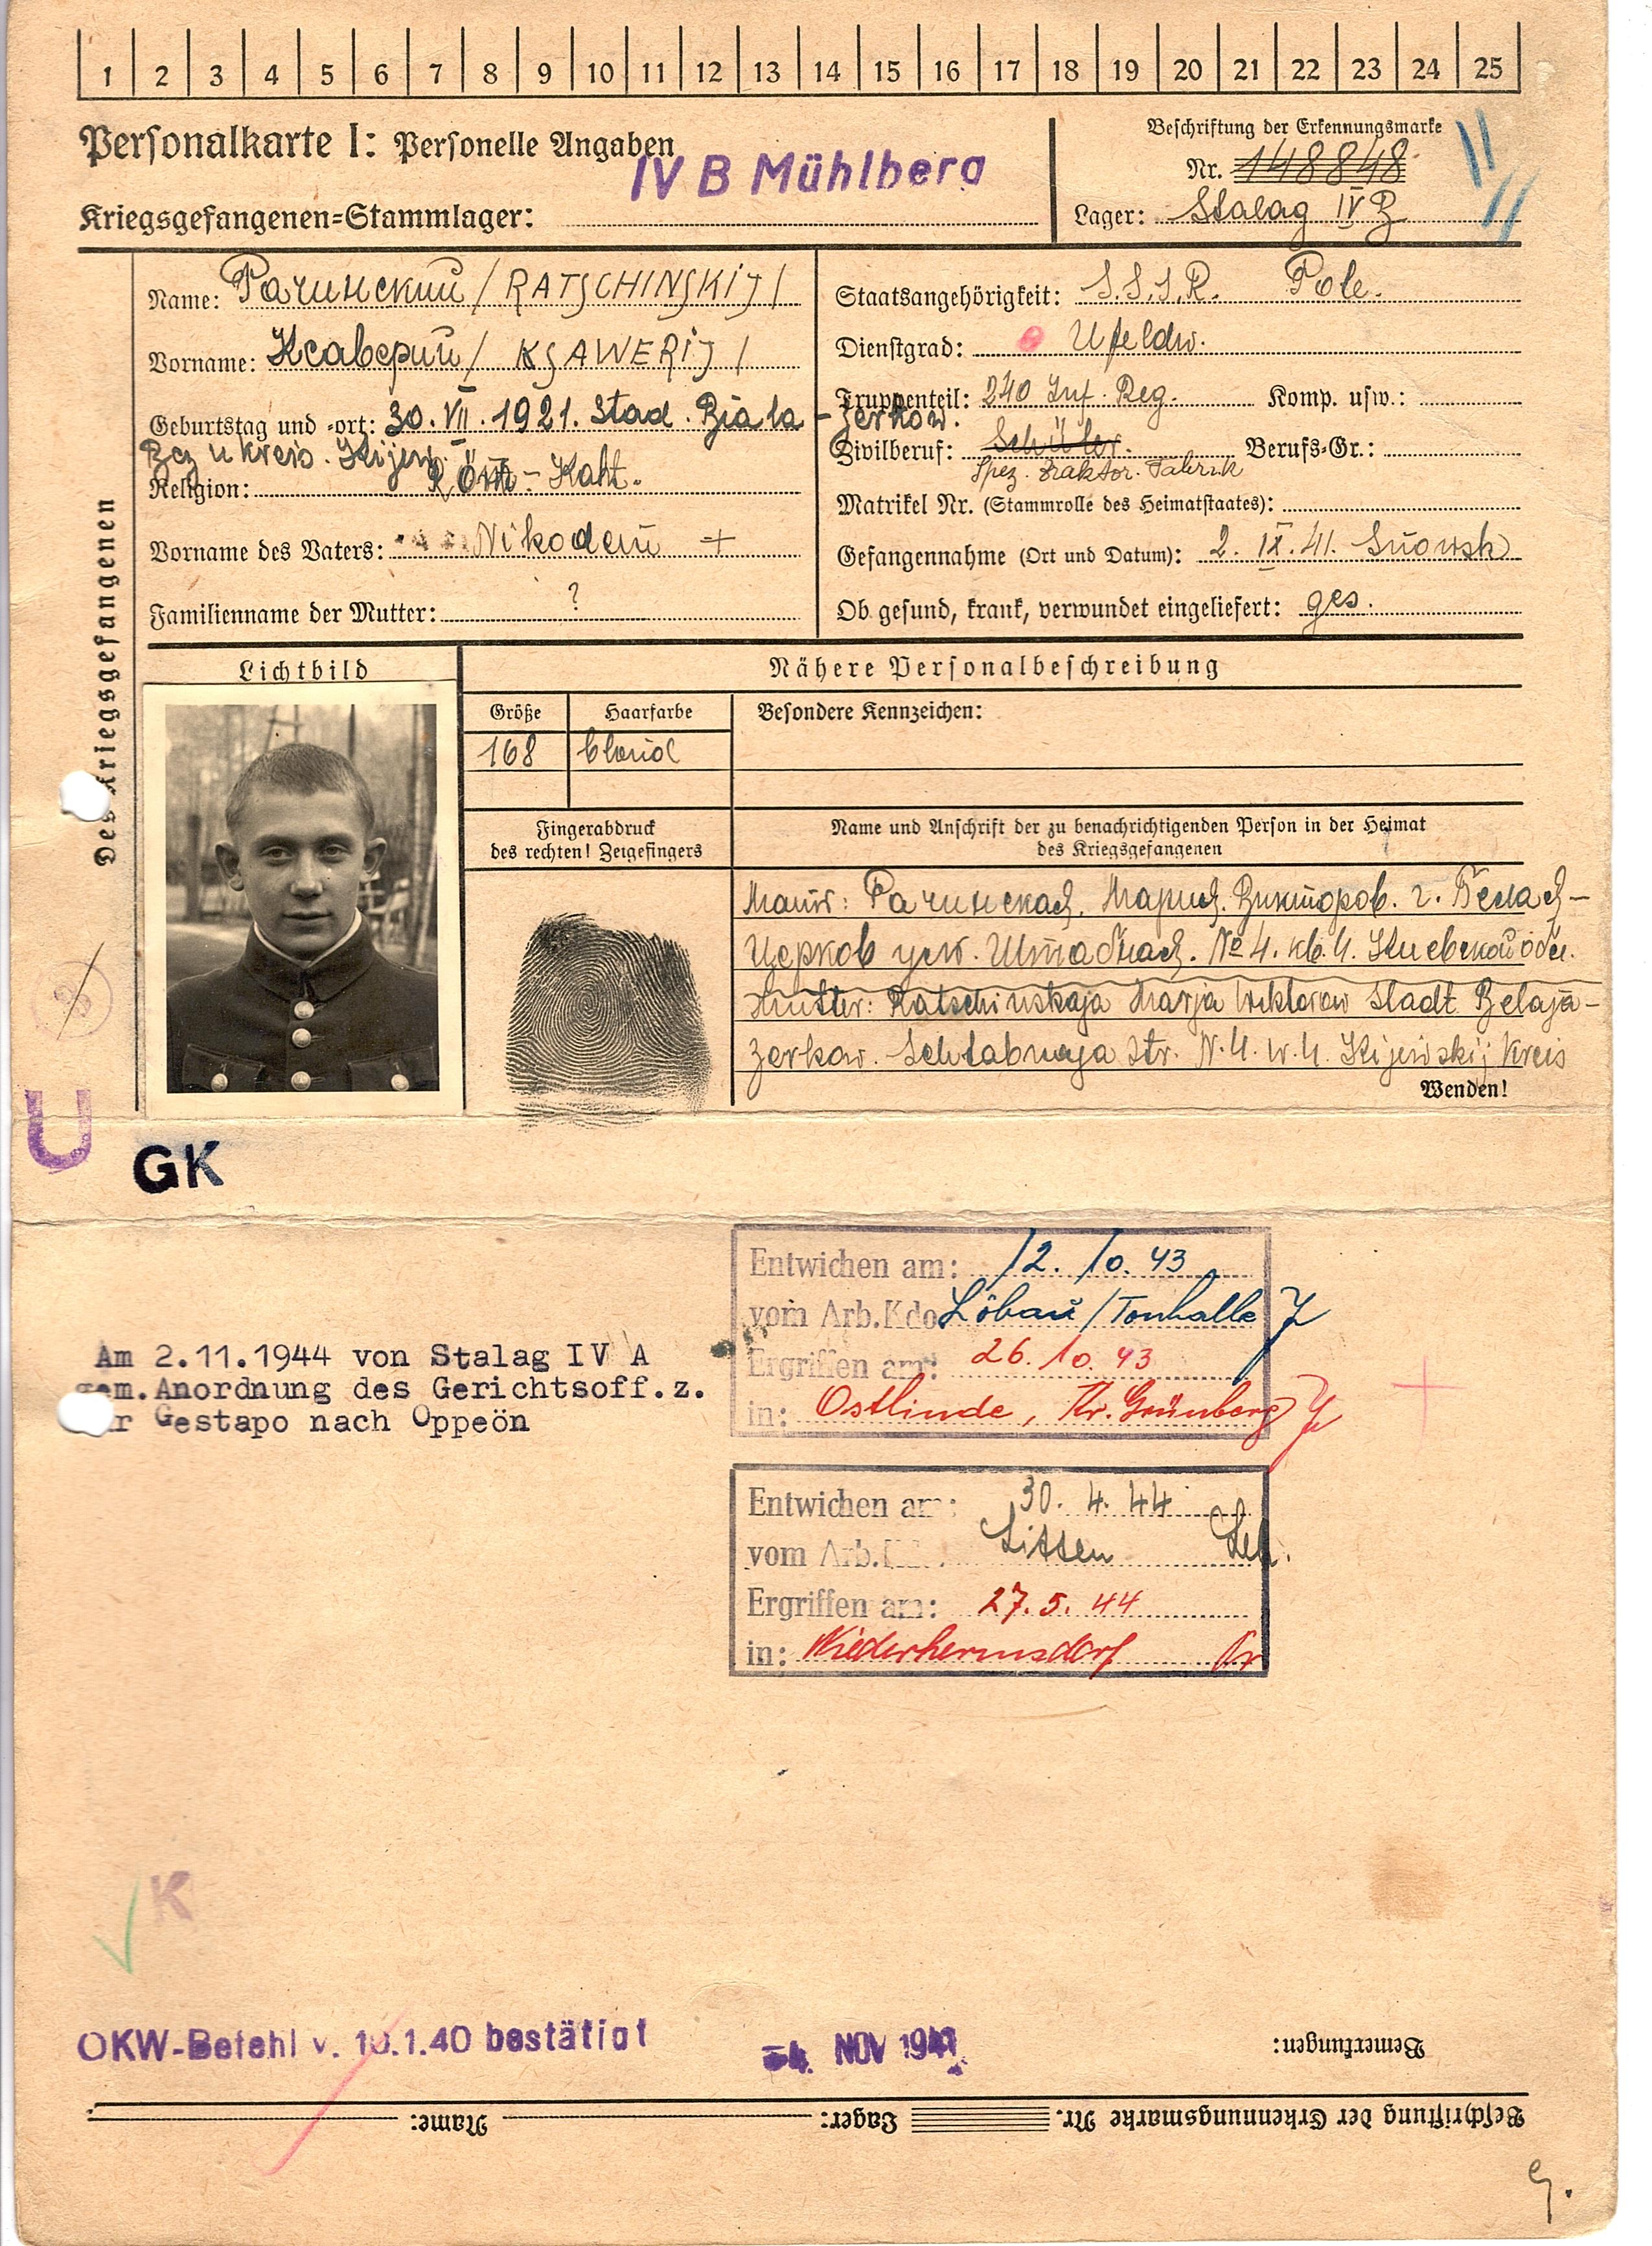 1 2 3 4 5 6 7 8 9 10 11 12 13 14 15 16 17 18 19 20 21 22 23 24 25
Personalkarte I: Personelle Angaben
IV B Mühlberg
Kriegsgefangenen=Stammlager:
Beschriftung der Erkennungsmarke
Nr. 148848
Lager: Stalag IV B
Des Kriegsgefangenen
Name: Рачинский / RATSCHINSKIJ /
Vorname: Ксаверий / KSAWERIJ /
Geburtstag und =ort: 30. VII. 1921. Stad. Biala - Zerkow.
Bez u Kreis. Kijew.
Religion: Röm - Kath.
Vorname des Vaters: Nikodem +
Familienname der Mutter: ?
Staatsangehörigkeit: S.S.S.R. Pole.
Dienstgrad: Ufeldw.
Truppenteil: 240 Inf. Reg. Komp. usw.:
Zivilberuf: Schüler. Berufs=Gr.:
Spez. Traktor. Fabrik
Matrikel Nr. (Stammrolle des Heimatstaates):
Gefangennahme (Ort und Datum): 2. IX. 41. Snowsk
Ob gesund, krank, verwundet eingeliefert: ges.
Lichtbild
Nähere Personalbeschreibung
Größe Haarfarbe Besondere Kennzeichen:
168 blond
Fingerabdruck
des rechten! Zeigefingers
Name und Anschrift der zu benachrichtigenden Person in der Heimat
des Kriegsgefangenen
Рачинская. Мария. Викторов. г. Белая-
Церков ул. Штабная. № 4. кв. 4. Киевской обл.
Mutter: Ratschinskaja Marja Wiktorow Stadt Belaja-
Zerkow. Schtabnaja Str. N. 4. w. 4. Kijewskij Kreis
Wenden!
U
GK
Entwichen am: 12. 10. 43
vom Arb.Kdo Löbau / Tonhalle
Ergriffen am: 26. 10. 43
in: Ostlinde, Kr. Grünberg
Am 2.11.1944 von Stalag IV A
gem. Anordnung des Gerichtsoff.z.
Gestapo nach Oppeön
Entwichen am: 30. 4. 44
vom Arb. Sitten
Ergriffen am: 27. 5. 44
in: Niederhermsdorf
K
OKW-Befehl v. 10.1.40 bestätigt
-4. NOV 1941
Bemerkungen:
Beschriftung der Erkennungsmarke Nr. Lager: Name: